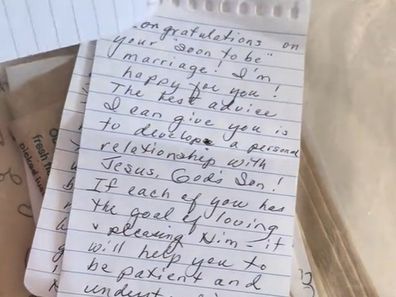 ongratulations on
your "soon to be"
marriage! I'm
happy for you!
The best advice
I can give you is
to develop a personal
relationship with
Jesus, God's Son!
If each of you has
the goal of loving
& pleasing Him - it
will help you to
be patient and
fresh